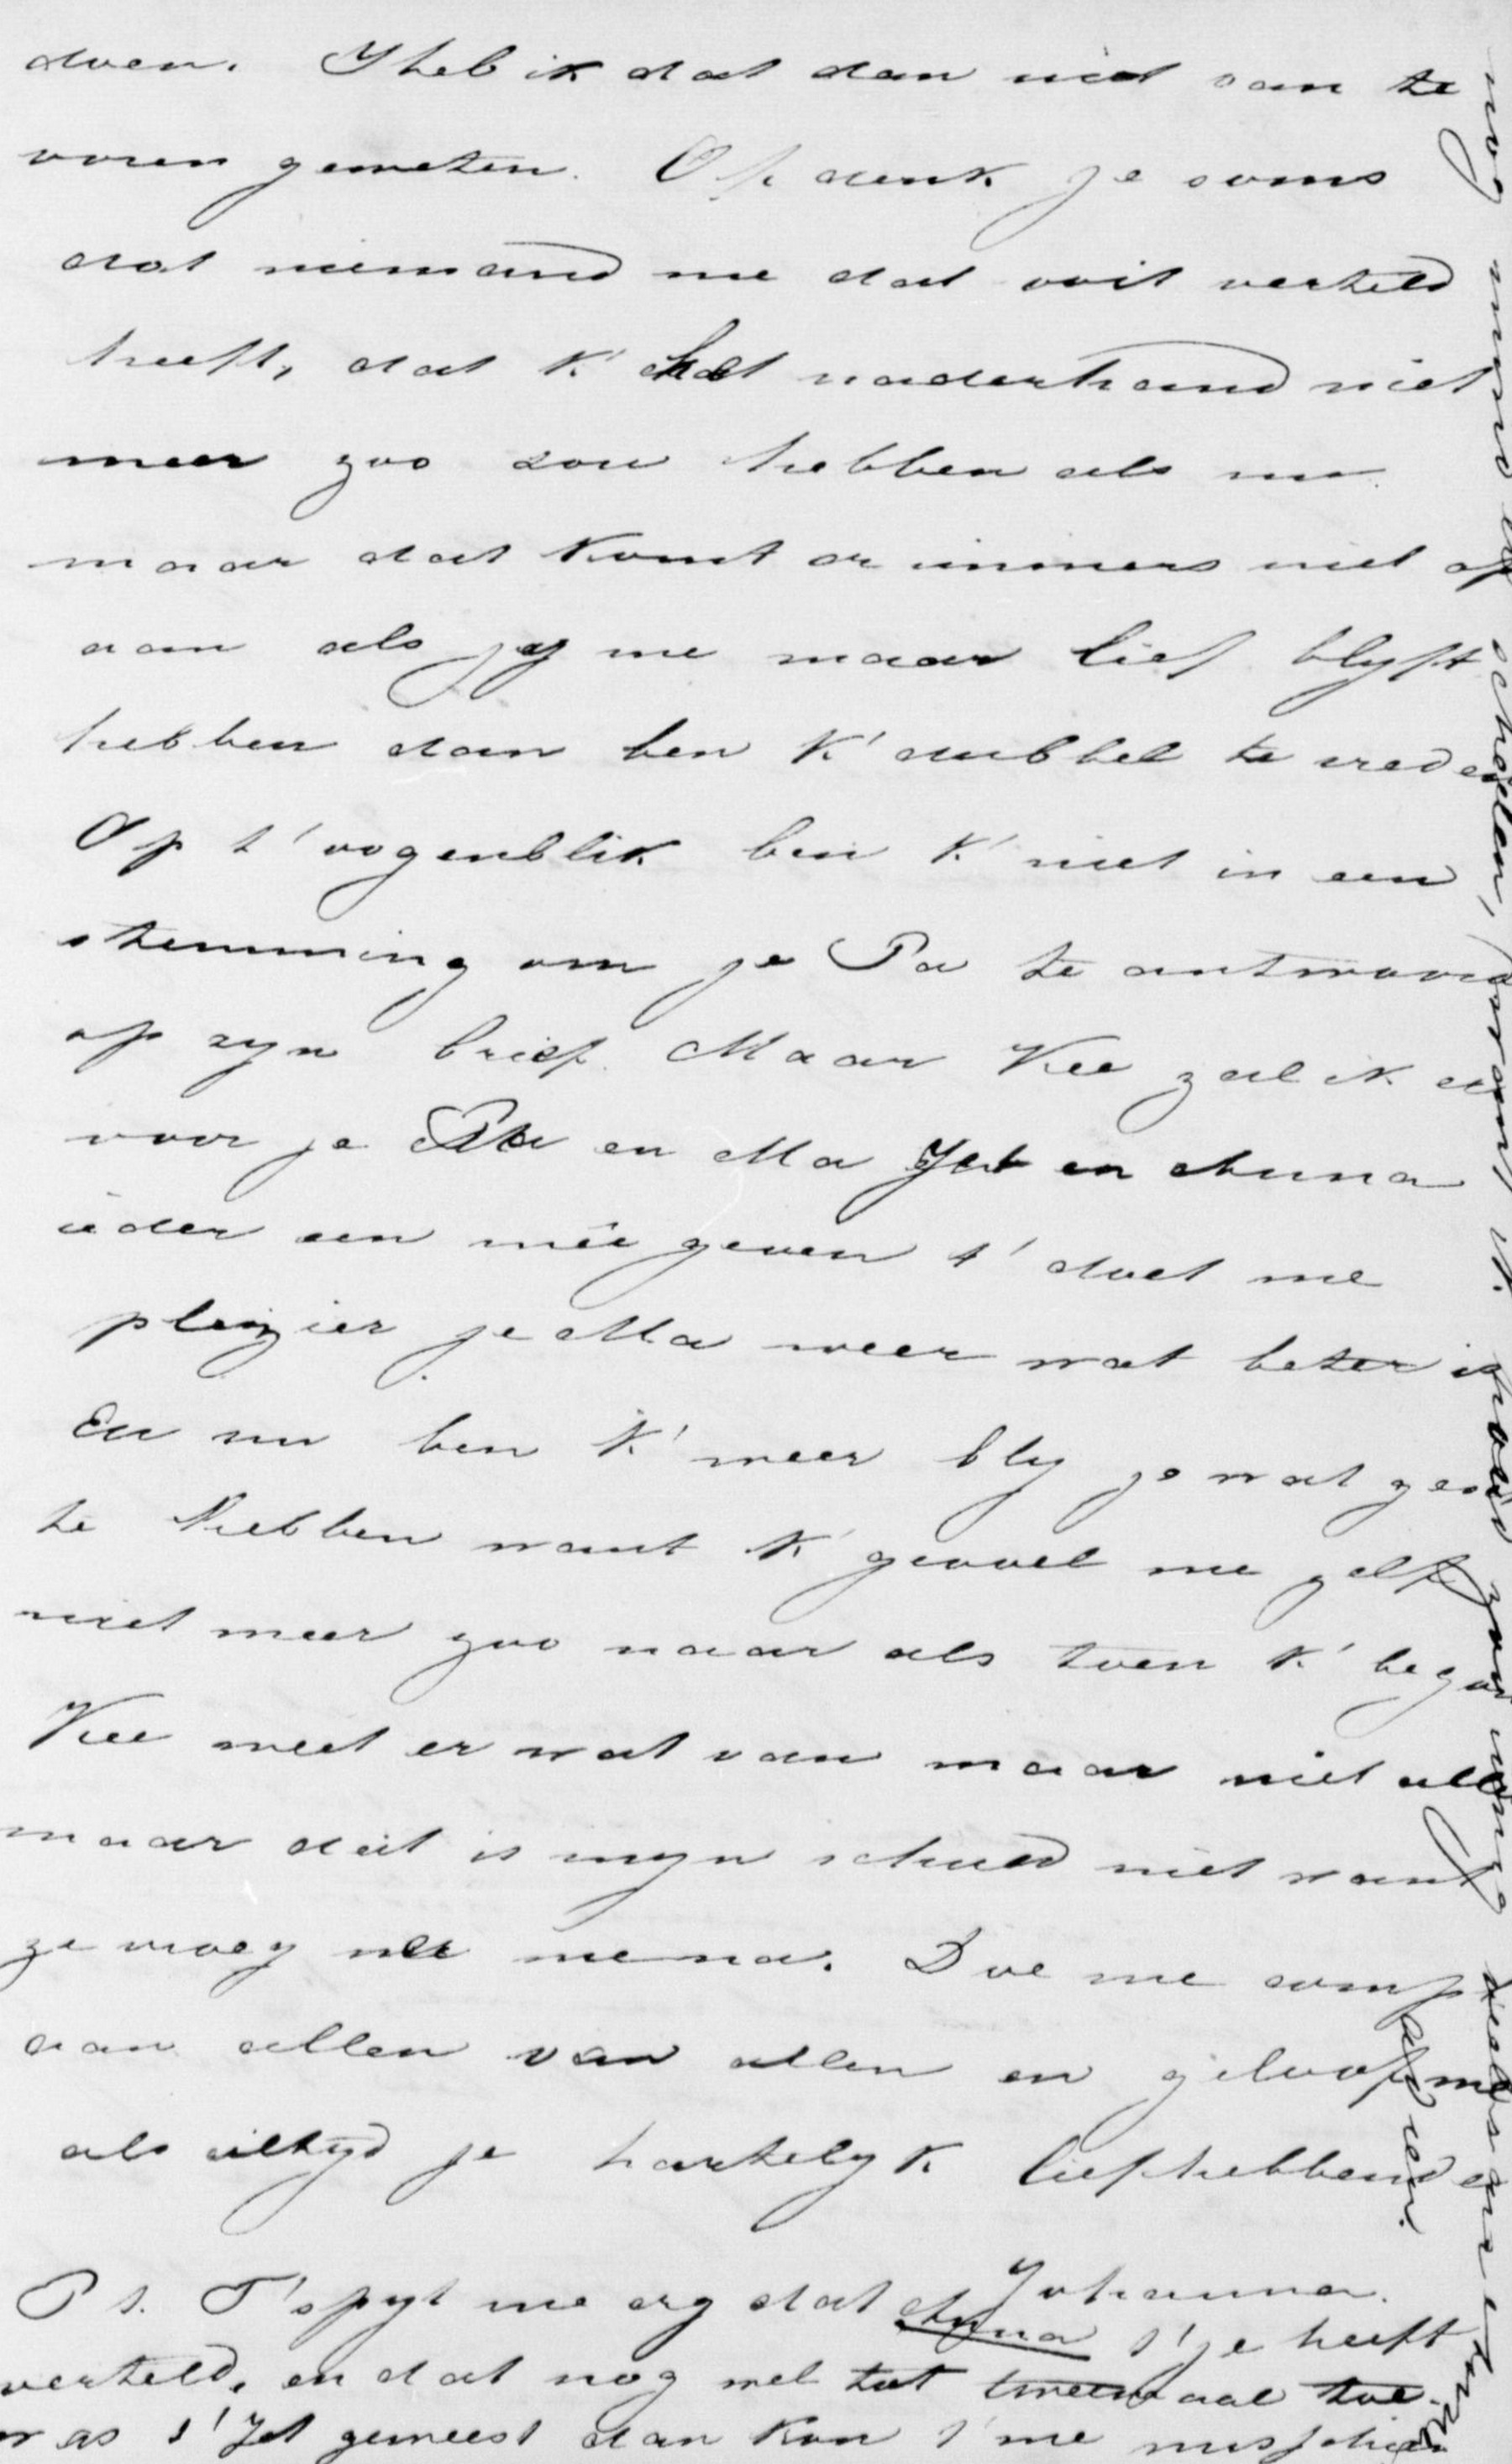 doen. Heb ik dat dan niet van te
voren geweten. Of denk je soms
dat niemand me dat ooit verteld
heeft, dat k' het naderhand niet
meer zoo zou hebben als nu.
maar dat komt er immers niet op
aan als jy me maar lief blyft
hebben dan ben k' dubbel te vreden
Op t' oogenblik ben k' niet in een
stemming om je Pa te antwoord
op zyn brief. Maar Kee zal ik er
voor je Pa en Ma Jet en Anna
ieder een meê geven t' doet me
plezier je Ma weer wat beter is
En nu ben k' weer bly je wat
te hebben want k' gevoel me zelf
niet meer zoo naar als toen k' begon
Kee weet er wat van maar niet alles
maar dat is myn schuld niet want
ze vroeg me niena. Doe me comp
aan allen van allen en geloof me
als altyd je hartelyk liefhebbende
Johanna.
Ps. T' spyt me erg dat Anna t' je heeft
verteld, en dat nog wel tot tweemaal toe.
was t' Jet geweest dan kon t' me misschien
nog minder schelen,